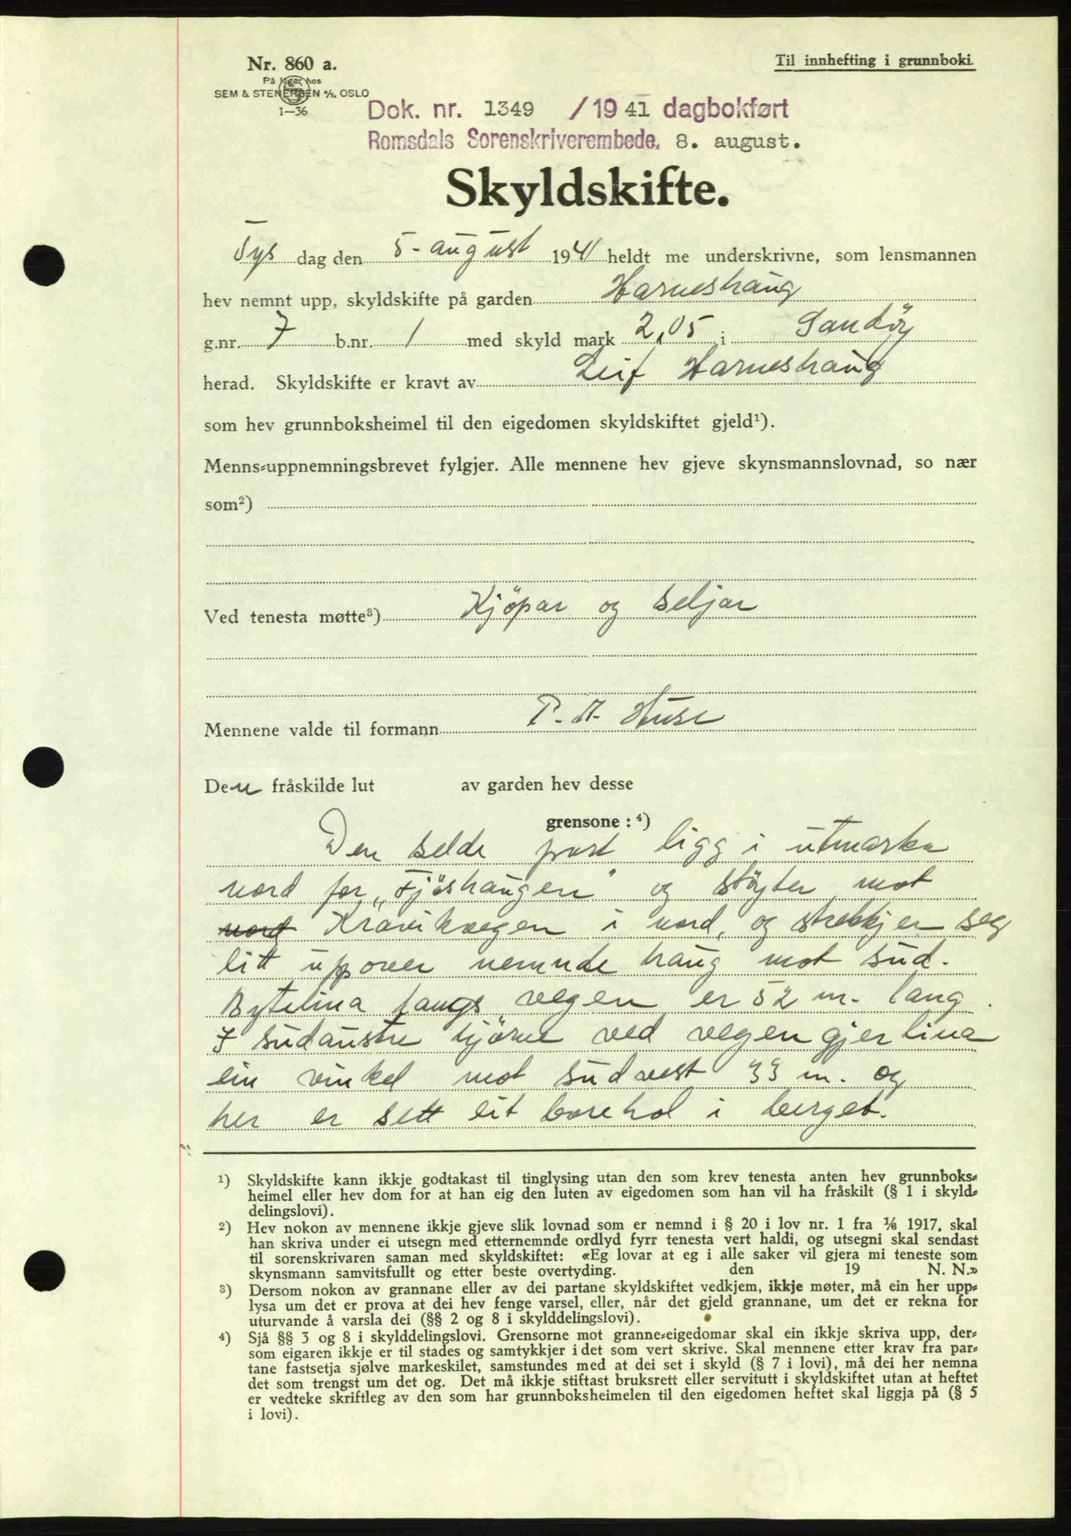 Nr. 860 a.
Til innhefting i grunnboki
På lager hos
SEM & STENERSEN A/S, OSLO
1—36
Dok. nr. 1349 /1941 dagbokført
Romsdals Sorenskriverembede, 8. august.
Skyldskifte.
Tys dag den 5- august 1941 heldt me underskrivne, som lensmannen
hev nemnt upp, skyldskifte på garden Harneshaug
g.nr. 7 b.nr. 1 med skyld mark 2,05 i Sandøy
herad. Skyldskifte er kravt av Leif Harneshaug
som hev grunnboksheimel til den eigedomen skyldskiftet gjeld¹).
Menns-uppnemningsbrevet fylgjer. Alle mennene hev gjeve skynsmannslovnad, so nær
som²)
Ved tenesta møtte³) Kjöpar og seljar
Mennene valde til formann P. A. Huse
Den fråskilde lut av garden hev desse
grensone: ⁴)
Den selde part ligg i utmarka
nord for „Fjöshaugen" og støyter mot
nord Kravikvegen i nord, og strekkjer seg
litt uppover nemnde haug mot sud.
Bytelina langs vegen er 52 m. lang.
I sudaustre hjörne ved vegen gjer lina
ein vinkel mot sudvest 33 m. og
her er sett eit borehol i berget.
¹) Skyldskifte kann ikkje godtakast til tinglysing utan den som krev tenesta anten hev grunnboks-
heimel eller hev dom for at han eig den luten av eigedomen som han vil ha fråskilt (§ 1 i skyld-
delingslovi).
²) Hev nokon av mennene ikkje gjeve slik lovnad som er nemnd i § 20 i lov nr. 1 fra 1/6 1917, skal
han skriva under ei utsegn med etternemnde ordlyd fyrr tenesta vert haldi, og utsegni skal sendast
til sorenskrivaren saman med skyldskiftet: «Eg lovar at eg i alle saker vil gjera mi teneste som
skynsmann samvitsfullt og etter beste overtyding. den 19 N. N.»
³) Dersom nokon av grannane eller av dei partane skyldskiftet vedkjem, ikkje møter, må ein her upp-
lysa um det er prova at dei hev fenge varsel, eller, når det gjeld grannane, um det er rekna for
uturvande å varsla dei (§§ 2 og 8 i skylddelingslovi).
⁴) Sjå §§ 3 og 8 i skylddelingslovi. Grensorne mot granne-eigedomar skal ein ikkje skriva upp, der-
som eigaren ikkje er til stades og samtykkjer i det som vert skrive. Skal mennene etter krav fra par-
tane fastsetja sjølve markeskilet, samstundes med at dei set i skyld (§ 7 i lovi), må dei her nemna
det som trengst um det og. Det må ikkje stiftast bruksrett eller servitutt i skyldskiftet utan at heftet
er vedteke skriftleg av den som har grunnboksheimelen til den eigedomen heftet skal liggja på (§ 5
i lovi).